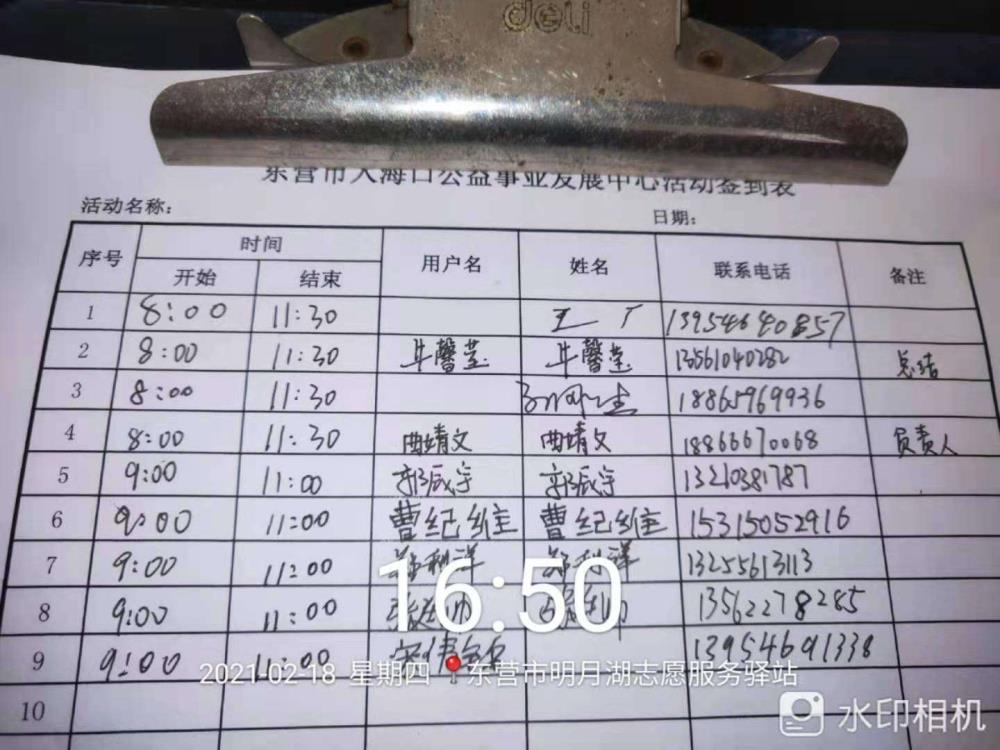 deli
东营市大海口公益事业发展中心活动签到表
活动名称： 日期：
序号 时间 用户名 姓名 联系电话 备注
开始 结束
1 8:00 11:30 13954640857
2 8:00 11:30 牛馨莹 牛馨莹 13561040282 总结
3 8:00 11:30 18865969936
4 8:00 11:30 曲靖文 曲靖文 18866670068 负责人
5 9:00 11:00 郭辰宇 郭辰宇 13210381787
6 9:00 11:00 曹纪维 曹纪维 15315052916
7 9:00 11:00 13255613113
8 9:00 11:00 13562278285
9 9:00 11:00 13954691338
10
16:50
2021-02-18 星期四 东营市明月湖志愿服务驿站
水印相机